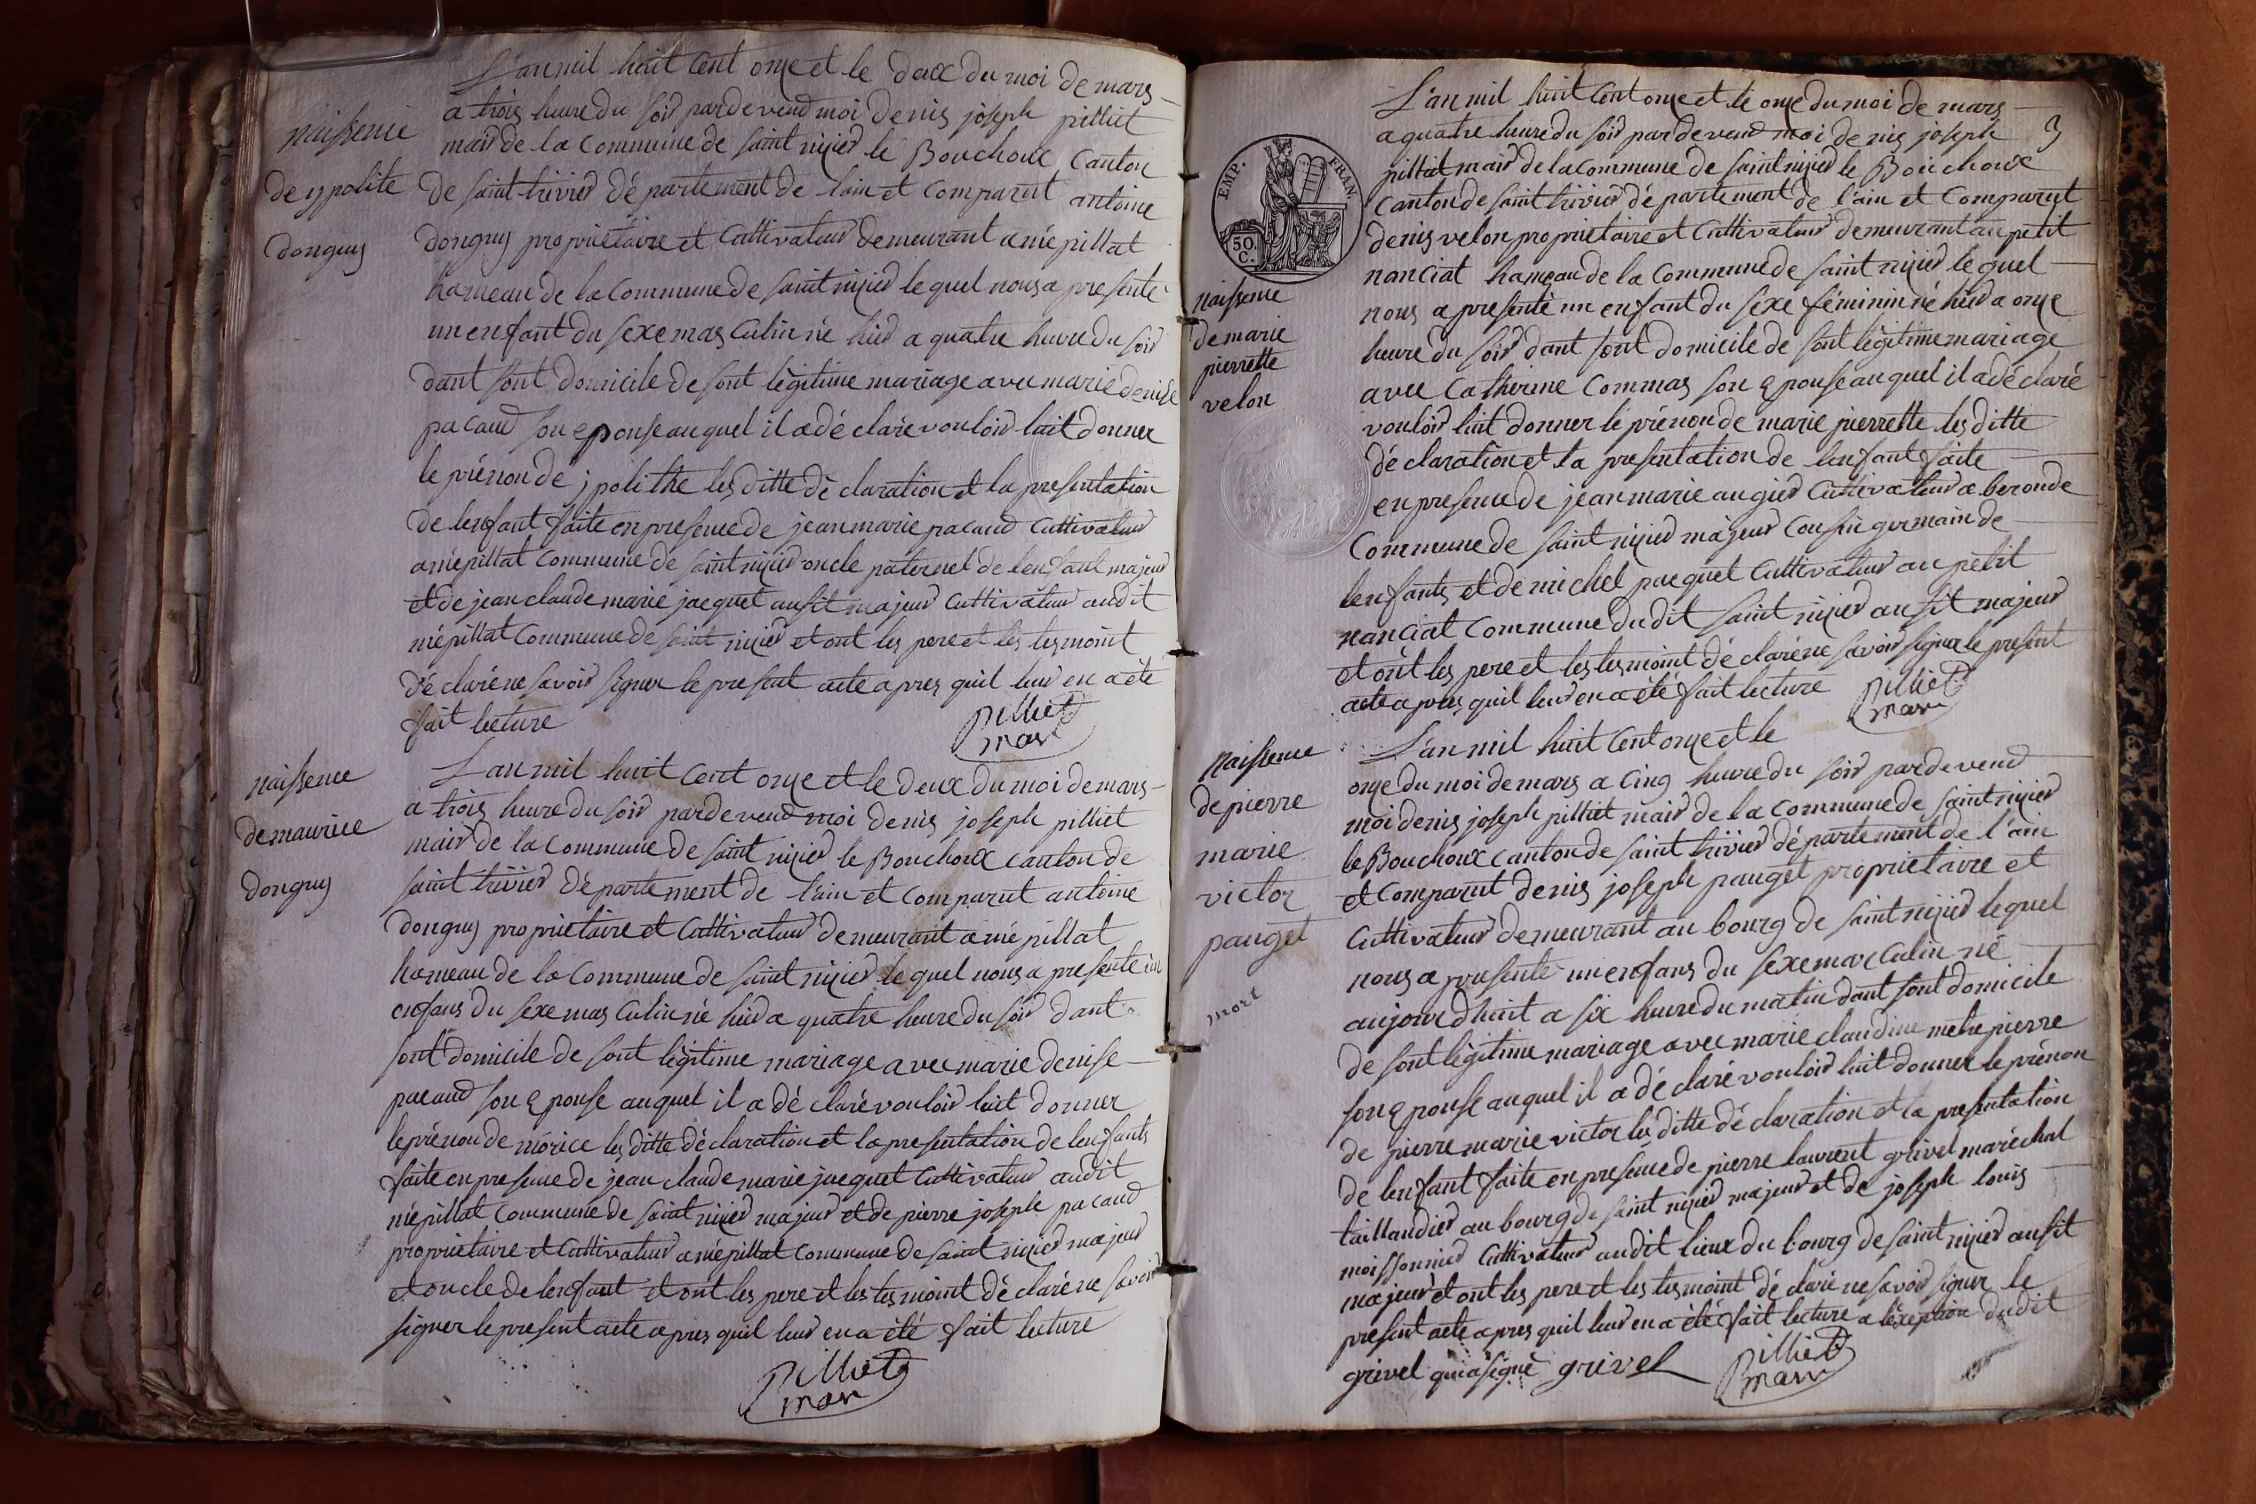 L'an mil huit Cent onze et le deux du moi de mars
a trois heure du soir pardevend moi denis joseph pilliet
mair de la Commune de saint nizier le Bouchoux Canton
de saint trivier département de l'ain et Comparut antoine
donguy propriétaire et Cultivateur demeurant a mépillat
hameau de la Commune de saint nizier le quel nous a presenté
un enfant du sexe mas Culin né hier a quatre heure du soir
dant sont domicile de sont légitime mariage avec marie denise
pacaud son epouse auquel il a dé claré vouloir luit donner
le prénon de jpolithe les ditte dé claration et la presentation
de lenfant faite en presence de jean marie pacaud Cultivateur
a mépillat Commune de saint nizier oncle paternel de lenfant majeur
et de jean claude marie jacquet ausit majeur Cultivateur audit
mépillat Commune de saint nizier et ont les pere et les tesmoint
dé claré ne savoir signer le present acte apres quil leur en a été
fait lecture
pilliet
mair
naissence
de ypolite
donguy
L'an mil huit Cent onze et le deux du moi de mars
a trois heure du soir pardevend moi denis joseph pilliet
mair de la Commune de saint nizier le Bouchoux canton de
saint trivier département de l'ain et Comparut antoine
donguy propriétaire et Cultivateur demeurant a mépillat
hameau de la Commune de saint nizier le quel nous a presenté un
enfans du sexe mas Culin né hier a quatre heure du soir dant
sont domicile de sont légitime mariage avec marie denise
pacaud son epouse auquel il a dé claré vouloir luit donner
le prénon de morice les ditte déclaration et la presentation de lenfants
faite en presence de jean claude marie jacquet Cultivateur audit
mépillat Commune de saint nizier majeur et de pierre joseph pacaud
propriétaire et Cultivateur a mépillat Commune de saint nizier majeur
et oncle de lenfant et ont les pere et les tesmoint dé claré ne savoir
signer le present acte apres quil leur en a été fait lecture
pilliet
mair
naissence
de maurice
donguy
3
L'an mil huit Cent onze et le onze du moi de mars
a quatre heure du soir pardevend moi denis joseph
pilliat mair de la Commune de saint nizier le Bouchoux
Canton de saint trivier département de l'ain et Comparut
denis velon propriétaire et Cultivateur demeurant au petit
nanciat hameau de la Commune de saint nizier le quel
nous a presenté un enfant du sexe féminin né hier a onze
heure du soir dant sont domicile de sont légitime mariage
avec Catherine Commas son epouse auquel il a dé claré
vouloir luit donner le prénon de marie pierrette les ditte
dé claration et la presentation de lenfant faite
en presence de jean marie augier Cultivateur a beronde
Commune de saint nizier majeur Cousin germain de
lenfants et de michel pacquet Cultivateur au petit
nanciat Commune dudit saint nizier ausit majeur
et ont les pere et les tesmoint dé claré ne savoir signer le present
acte apres quil leur en a été fait lecture
pilliet
mair
EMP. FRAN.
50.
C.
naissence
de marie
pierrette
velon
L'an mil huit Cent onze et le
onze du moi de mars a Cinq heure du soir pardevend
moi denis joseph pilliat mair de la Commune de saint nizier
le Bouchoux canton de saint trivier département de l'ain
et Comparut denis joseph pauget propriétaire et
Cultivateur demeurant au bourg de saint nizier le quel
nous a presenté un enfans du sexe mas Culin né
aujourdhuit a six heure du matin dant sont domicile
de sont légitime mariage avec marie claudine metrepierre
son epouse auquel il a dé claré vouloir luit donner le prénon
de pierre marie victor les ditte dé claration et la presentation
de lenfant faite en presence de pierre laurent grivel maréchal
taillandier au bourg de saint nizier majeur et de joseph louis
moissonnier Cultivateur audit lieux du bourg de saint nizier ausit
majeur et ont les pere et les tesmoint dé claré ne savoir signer le
present acte apres quil leur en a été fait lecture a léxeption dudit
grivel qui a signé grivel
pilliet
mair
naissence
de pierre
marie
victor
pauget
mort